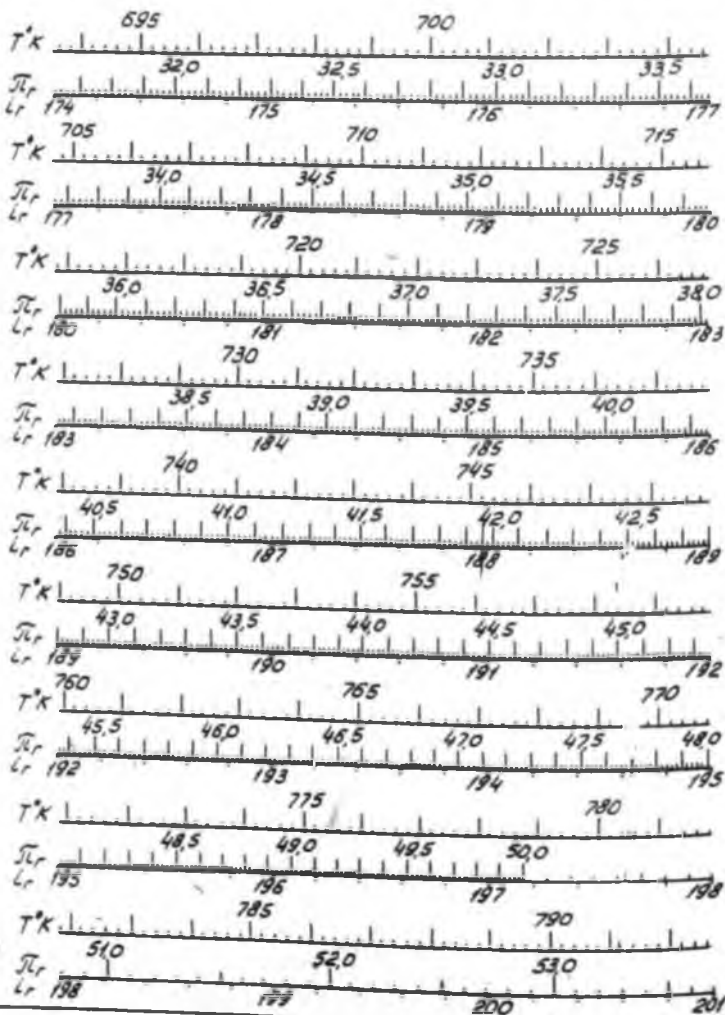 695 700
T°K
32,0 32,5 33,0 33,5
πr
ir 174 175 176 177
705 710 715
T°K
34,0 34,5 35,0 35,5
πr
ir 177 178 179 180
720 725
T°K
36,0 36,5 37,0 37,5 38,0
πr
ir 180 181 182 183
730 735
T°K
38,5 39,0 39,5 40,0
πr
ir 183 184 185 186
740 745
T°K
40,5 41,0 41,5 42,0 42,5
πr
ir 186 187 188 189
750 755
T°K
43,0 43,5 44,0 44,5 45,0
πr
ir 189 190 191 192
760 765 770
T°K
45,5 46,0 46,5 47,0 47,5 48,0
πr
ir 192 193 194 195
775 780
T°K
48,5 49,0 49,5 50,0
πr
ir 195 196 197 198
785 790
T°K
51,0 52,0 53,0
πr
ir 198 199 200 201